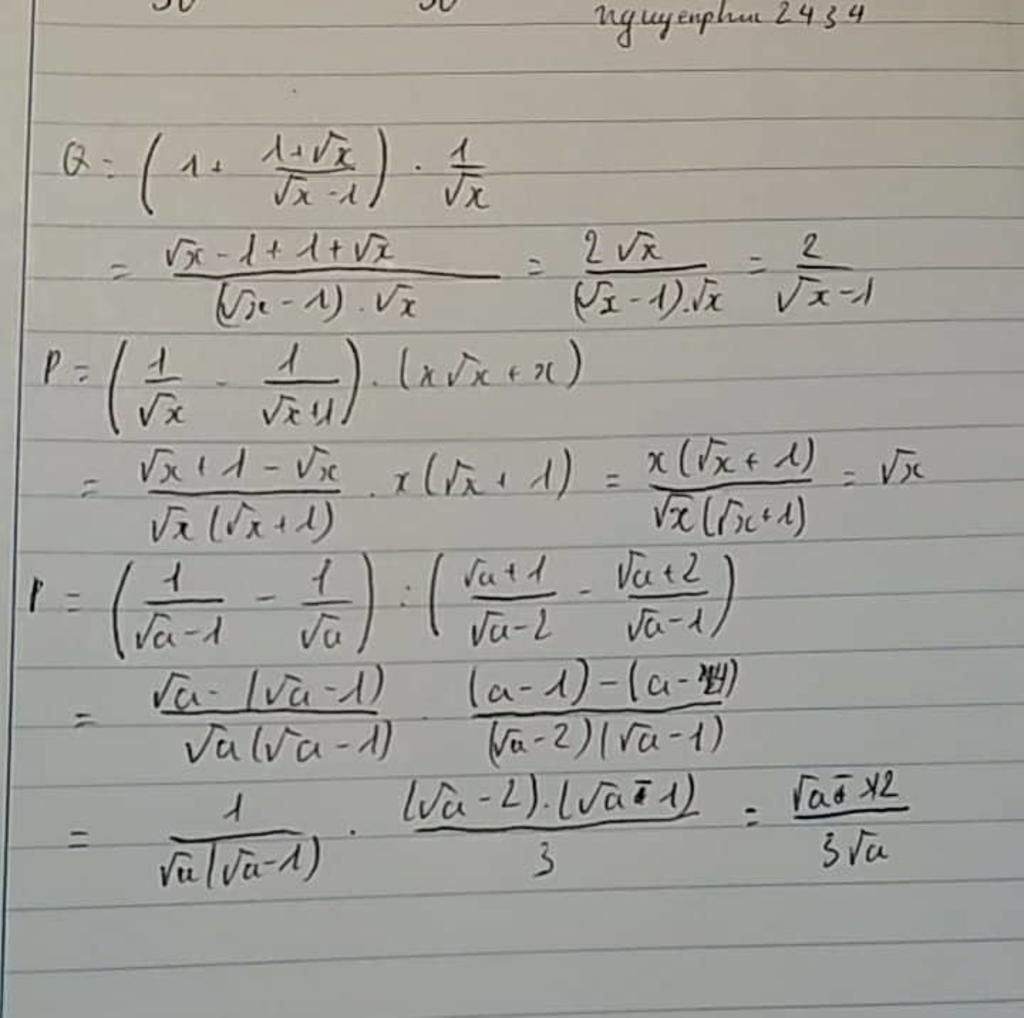 50 50 nguyenphuc2434
Q = (1 + (1+√x)/(√x-1)) · 1/√x
= (√x-1+1+√x)/((√x-1).√x) = 2√x/((√x-1).√x) = 2/(√x-1)
P = (1/√x - 1/(√x+1)) . (x√x + x)
= (√x+1-√x)/(√x(√x+1)) . x(√x+1) = x(√x+1)/(√x(√x+1)) = √x
P = (1/(√a-1) - 1/√a) : ((√a+1)/(√a-2) - (√a+2)/(√a-1))
= (√a-(√a-1))/(√a(√a-1)) . ((a-1)-(a-4))/((√a-2)(√a-1))
= 1/(√a(√a-1)) . ((√a-2).(√a-1))/3 = (√a-2)/(3√a)